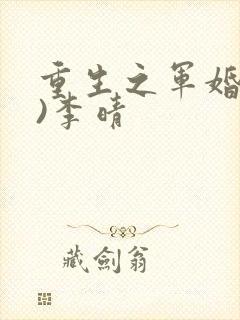 重生之军婚
)李晴
藏劍翁